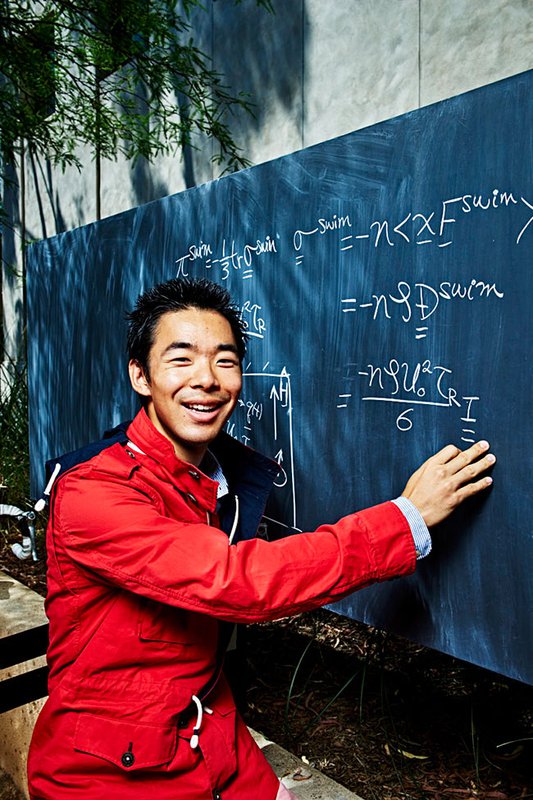 πˢʷⁱᵐ = -⅓ tr σˢʷⁱᵐ
σˢʷⁱᵐ = -n<x Fˢʷⁱᵐ>
= -nζDˢʷⁱᵐ
= -nζU₀²τ_R / 6 I